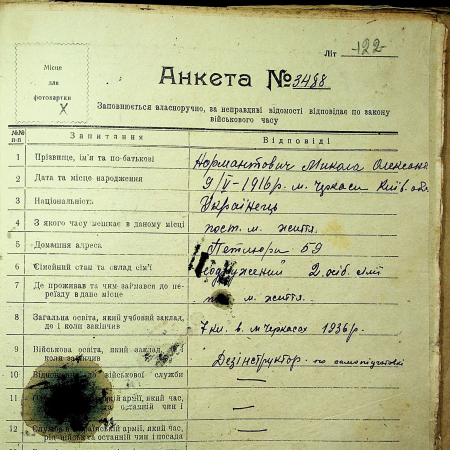 Літ -122-
Місце
для
фотокартки
Анкета № 3488
Заповнюється власноручно, за неправдиві відомості відповідає по закону
військового часу
№№ п-п Запитання Відповіді
1 Прізвище, ім'я та по-батькові Нормантович Микола Олексан
2 Дата та місце народження 9/V-1916 р. м. Черкаси Київ. обл.
3 Національність Українець
4 З якого часу мешкає в даному місці пост. м. життя
5 Домашня адреса Петлюри 59
6 Сімейний стан та склад сім'ї одружений 2 осіб
7 Де проживав та чим займався до пе-
реїзду в дане місце м. життя
8 Загальна освіта, який учбовий заклад,
де і коли закінчив 7 кл. в. м. Черкасах 1936 р.
9 Військова освіта, який заклад,
коли закінчив Дезінструктор по самопідготовці
10 до військової служби —
11 армії, який час,
та останній чин і —
12 Служба в українській армії, який час,
рід військ та останній чин і посада